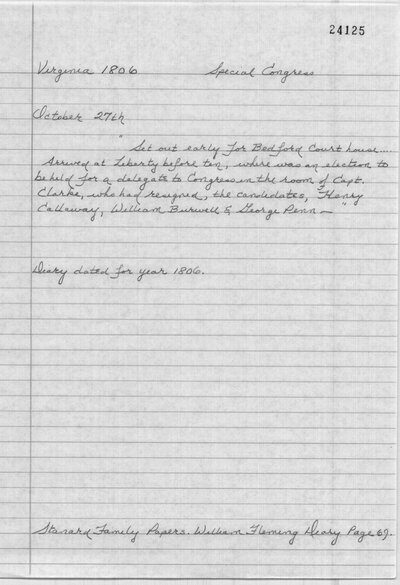 24125
Virginia 1806 Special Congress
October 27th
" Set out early for Bedford Court house...
Arrived at Liberty before ten, where was an election to
be held for a delegate to Congress in the room of Capt.
Clarke, who had resigned, the candidates, Henry
Callaway, William Burwell & George Penn — "
Diary dated for year 1806.
Stanard Family Papers. William Fleming Diary Page 67.